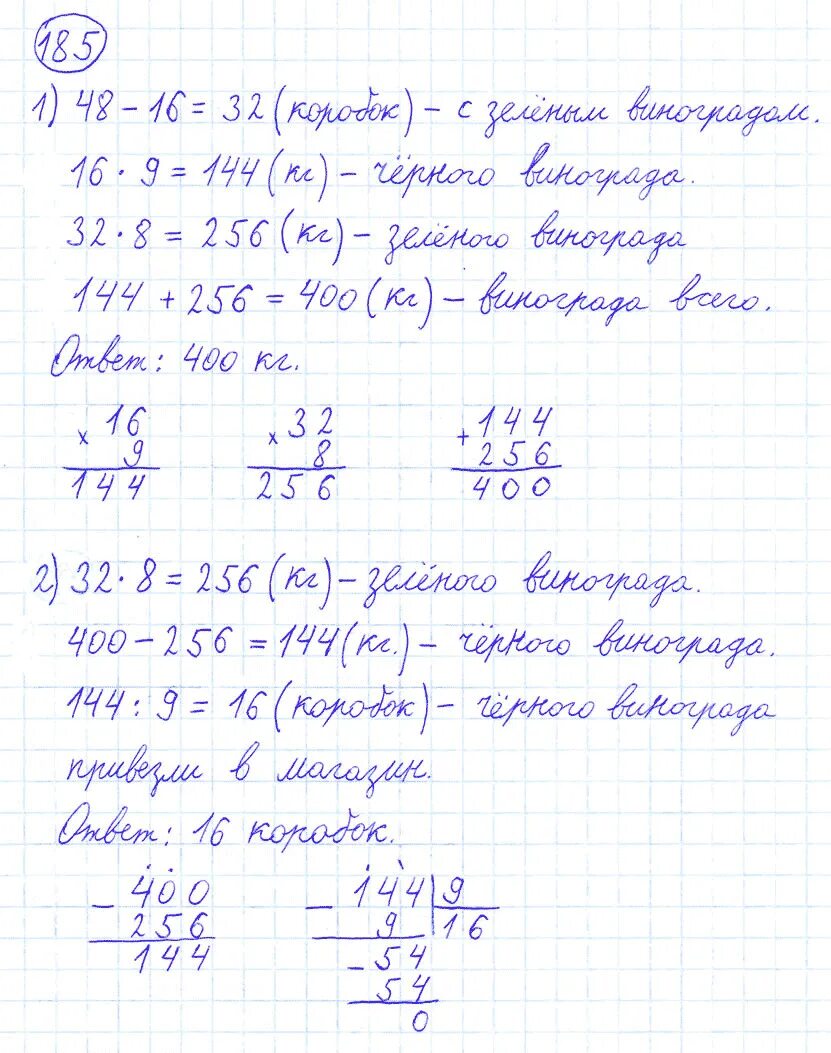 185
1) 48 – 16 = 32 (коробок) – с зелёным виноградом.
16 · 9 = 144 (кг) – чёрного винограда.
32 · 8 = 256 (кг) – зелёного винограда
144 + 256 = 400 (кг) – винограда всего.
Ответ: 400 кг.
× 16 × 32 + 144
9 8 256
144 256 400
2) 32 · 8 = 256 (кг) – зелёного винограда.
400 – 256 = 144 (кг.) – чёрного винограда.
144 : 9 = 16 (коробок) – чёрного винограда
привезли в магазин.
Ответ: 16 коробок.
– 400 – 144 | 9
256 9 | 16
144 – 54
54
0